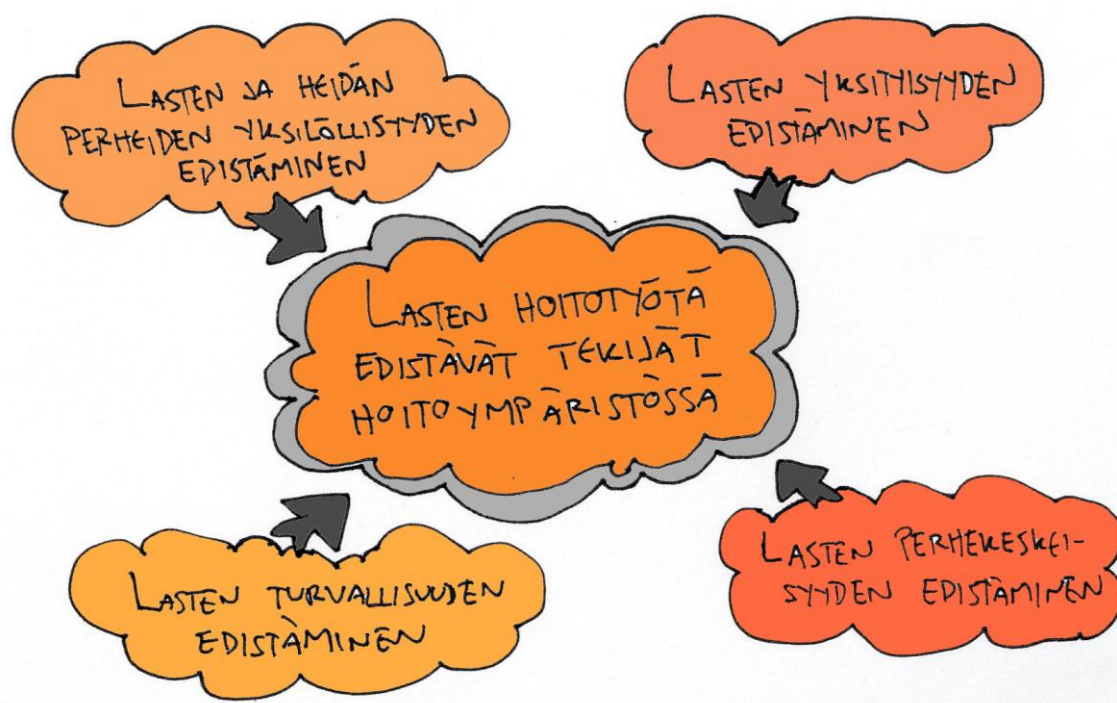 LASTEN JA HEIDÄN
PERHEIDEN YKSILÖLLISYYDEN
EDISTÄMINEN
LASTEN YKSITYISYYDEN
EDISTÄMINEN
LASTEN HOITOTYÖTÄ
EDISTÄVÄT TEKIJÄT
HOITOYMPÄRISTÖSSÄ
LASTEN TURVALLISUUDEN
EDISTÄMINEN
LASTEN PERHEKESKEI-
SYYDEN EDISTÄMINEN